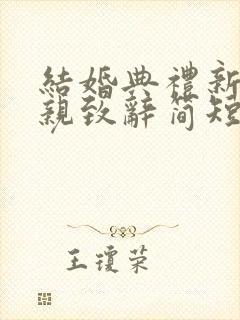 結婚典禮新
親致辭简短
王瓊荣